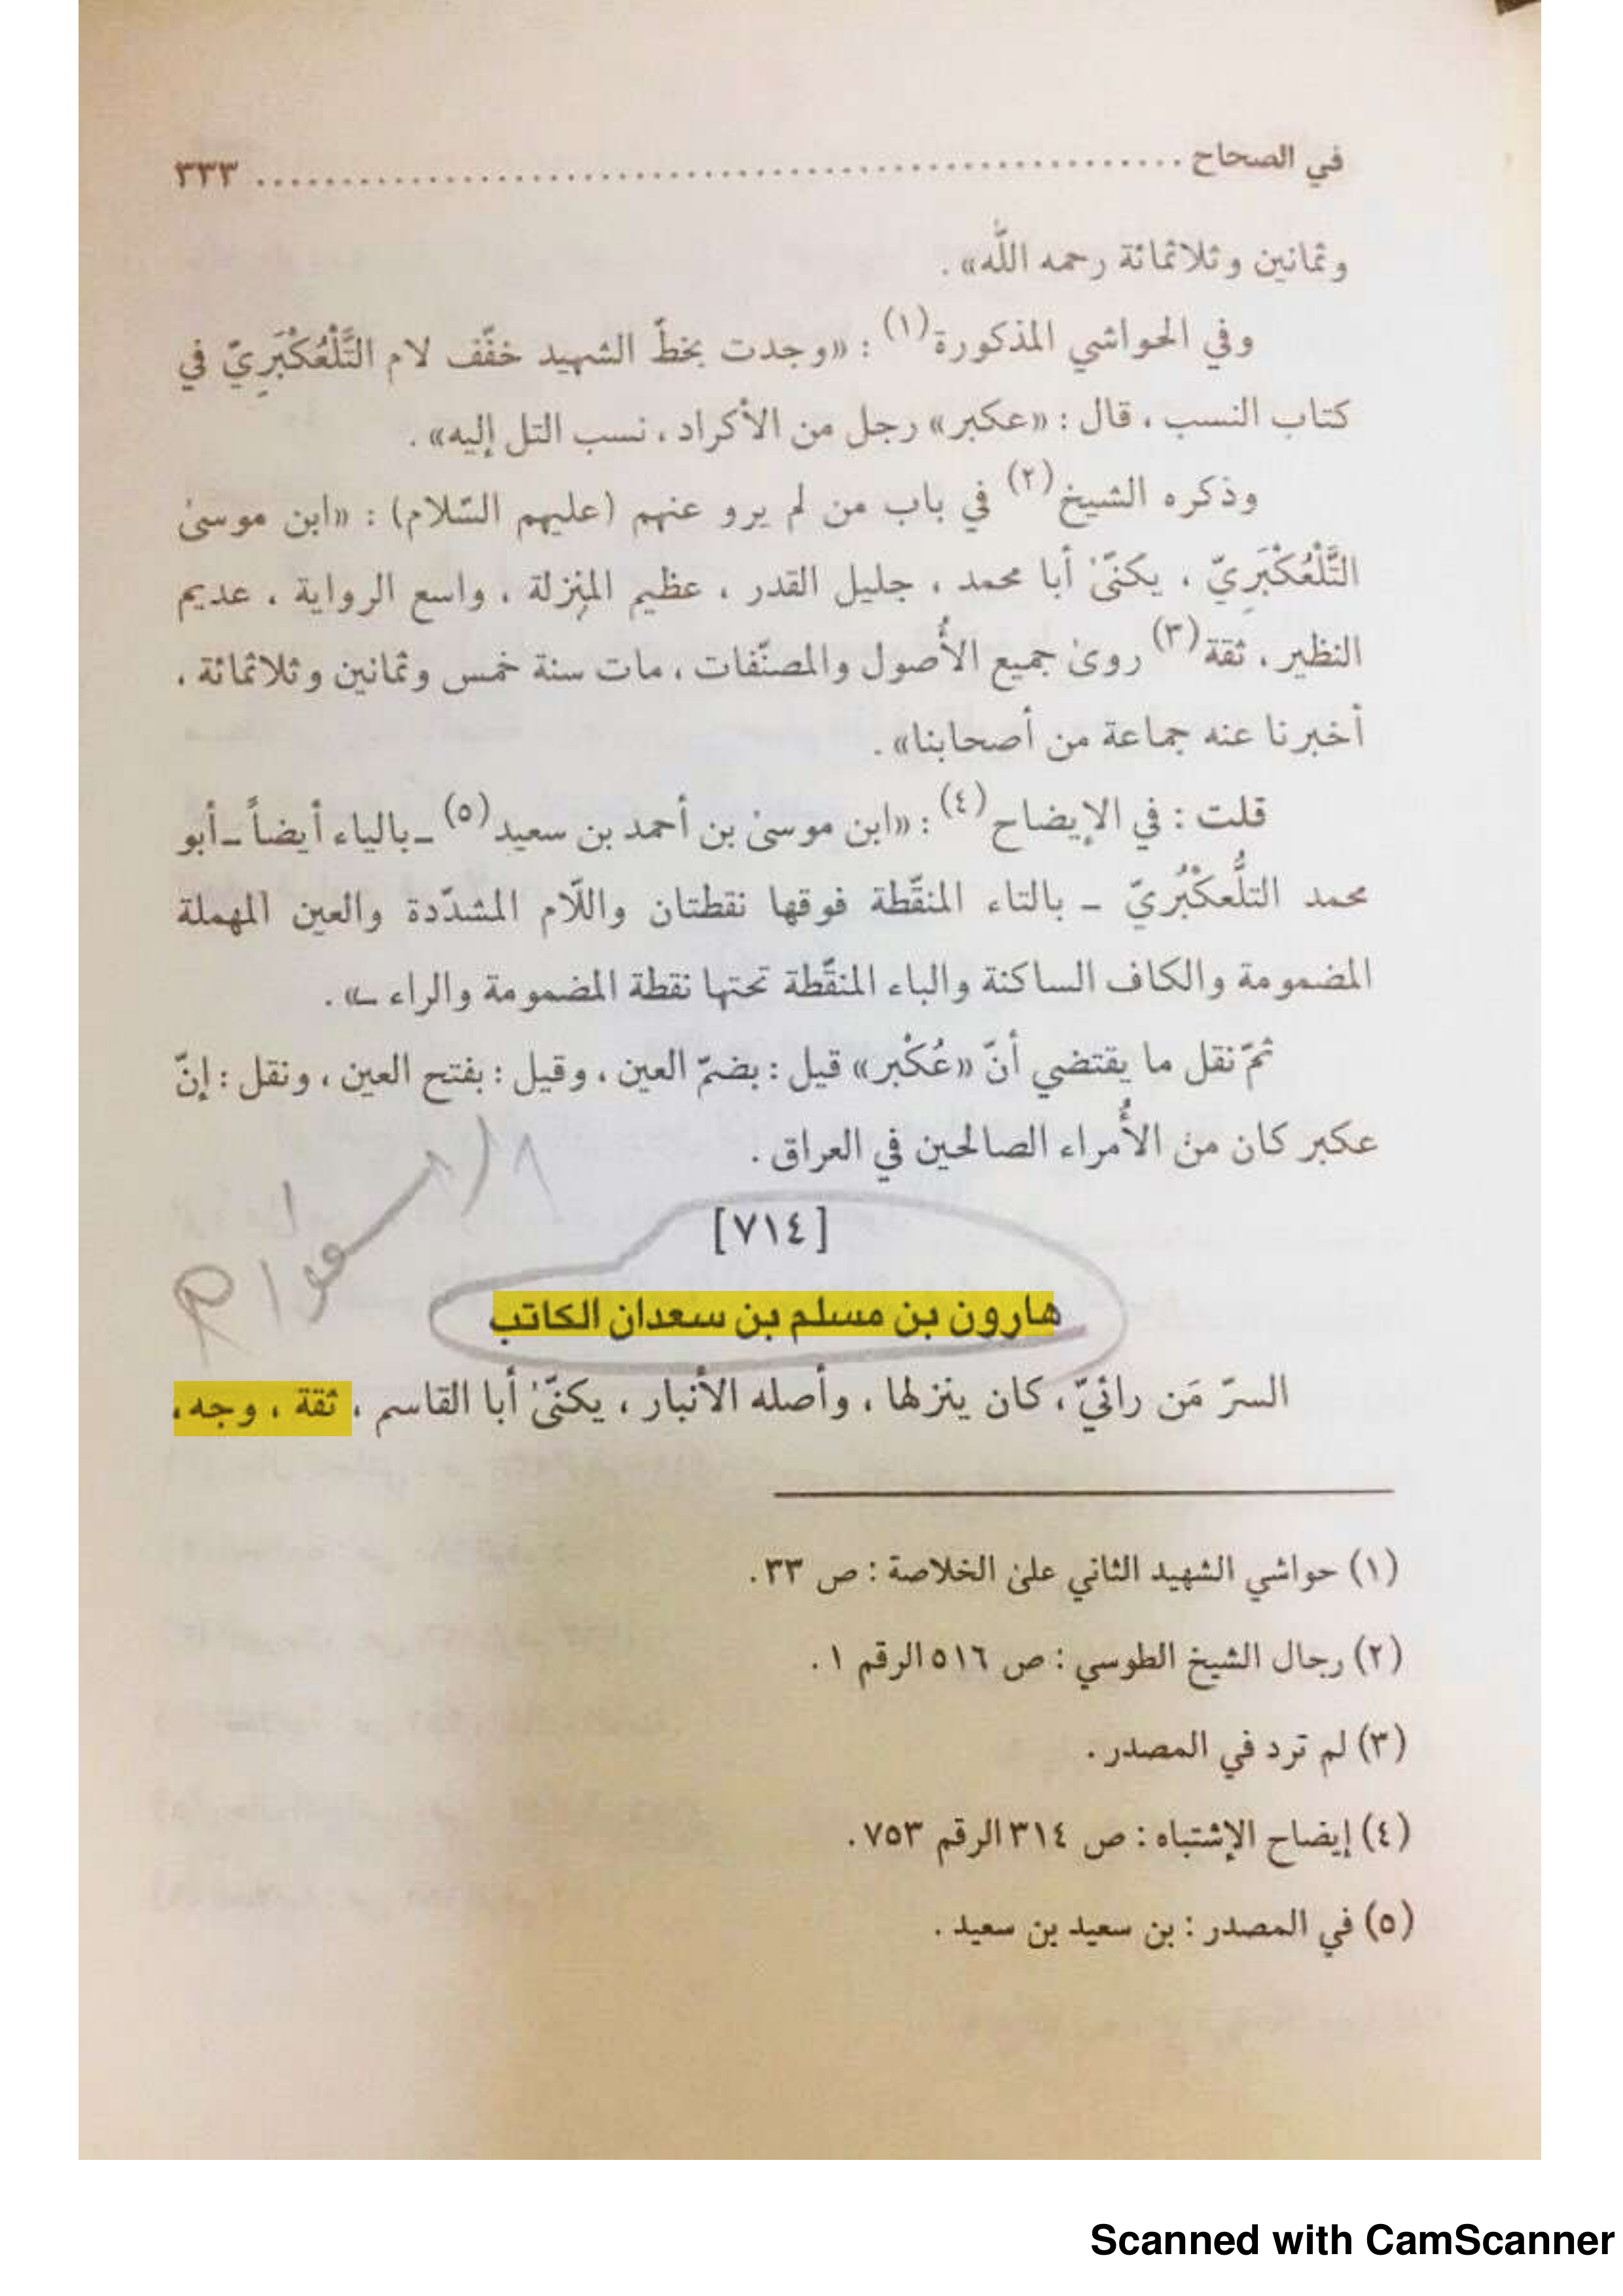 في الصحاح ........................................................ ٣٣٣
وثمانين وثلاثمائة رحمه اللّه» .
وفي الحواشي المذكورة(١) : «وجدت بخطّ الشهيد خفّف لام التَّلْعُكْبَرِيّ في
كتاب النسب ، قال : «عكبر» رجل من الأكراد ، نسب التل إليه» .
وذكره الشيخ(٢) في باب من لم يرو عنهم (عليهم السّلام) : «ابن موسىٰ
التَّلْعُكْبَرِيّ ، يكنّىٰ أبا محمد ، جليل القدر ، عظيم المنزلة ، واسع الرواية ، عديم
النظير ، ثقة(٣) روىٰ جميع الأُصول والمصنّفات ، مات سنة خمس وثمانين وثلاثمائة ،
أخبرنا عنه جماعة من أصحابنا» .
قلت : في الإيضاح(٤) : «ابن موسىٰ بن أحمد بن سعيد(٥) ـ بالياء أيضاً ـ أبو
محمد التلُّعكْبُريّ ـ بالتاء المنقّطة فوقها نقطتان واللّام المشدّدة والعين المهملة
المضمومة والكاف الساكنة والباء المنقّطة تحتها نقطة المضمومة والراء ـ» .
ثمّ نقل ما يقتضي أنّ «عُكْبر» قيل : بضمّ العين ، وقيل : بفتح العين ، ونقل : إنّ
عكبر كان من الأُمراء الصالحين في العراق .
[٧١٤]
هارون بن مسلم بن سعدان الكاتب
السرّ مَن رائيّ ، كان ينزلها ، وأصله الأنبار ، يكنّىٰ أبا القاسم ، ثقة ، وجه ،
(١) حواشي الشهيد الثاني علىٰ الخلاصة : ص ٣٣ .
(٢) رجال الشيخ الطوسي : ص ٥١٦ الرقم ١ .
(٣) لم ترد في المصدر .
(٤) إيضاح الإشتباه : ص ٣١٤ الرقم ٧٥٣ .
(٥) في المصدر : بن سعيد بن سعيد .
Scanned with CamScanner